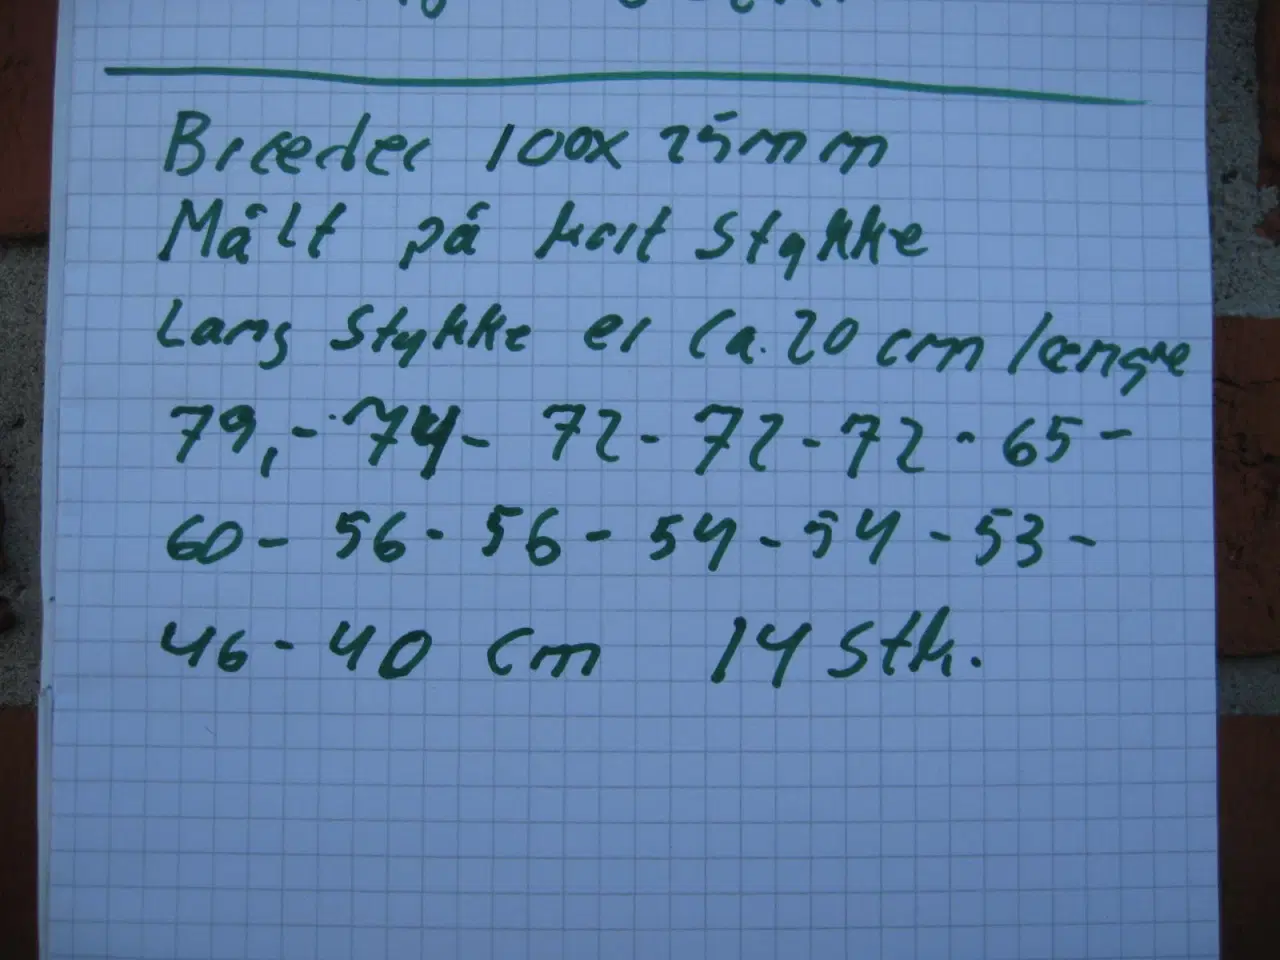 Bræder 100x25mm
Målt på kort stykke
Lang stykke er ca. 20 cm længre
79,- 74- 72- 72- 72- 65-
60- 56- 56- 54- 54- 53-
46- 40 cm 14 stk.